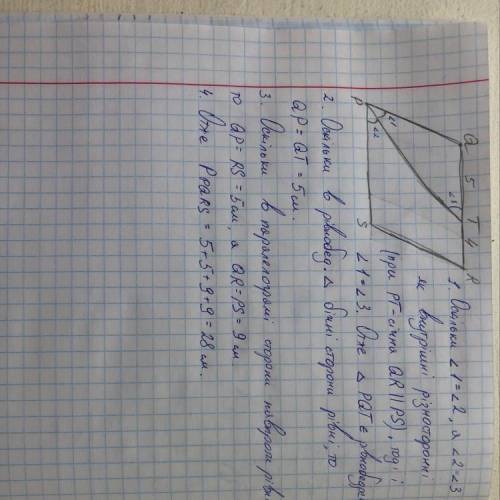 Q 5 T 4 R
P ∠1 ∠2 ∠3 S
1. Оскільки ∠1=∠2, а ∠2=∠3
як внутрішні різносторонні
(при PT-січна QR||PS), тоді і
∠1=∠3. Отже △ PQT є рівнобедр
2. Оскільки в рівнобед. △ бічні сторони рівні, то
QP = QT = 5 см.
3. Оскільки в паралелограмі сторони навпроти рівн
то QP=RS=5см, а QR=PS=9 см
4. Отже P PQRS = 5+5+9+9=28 см.